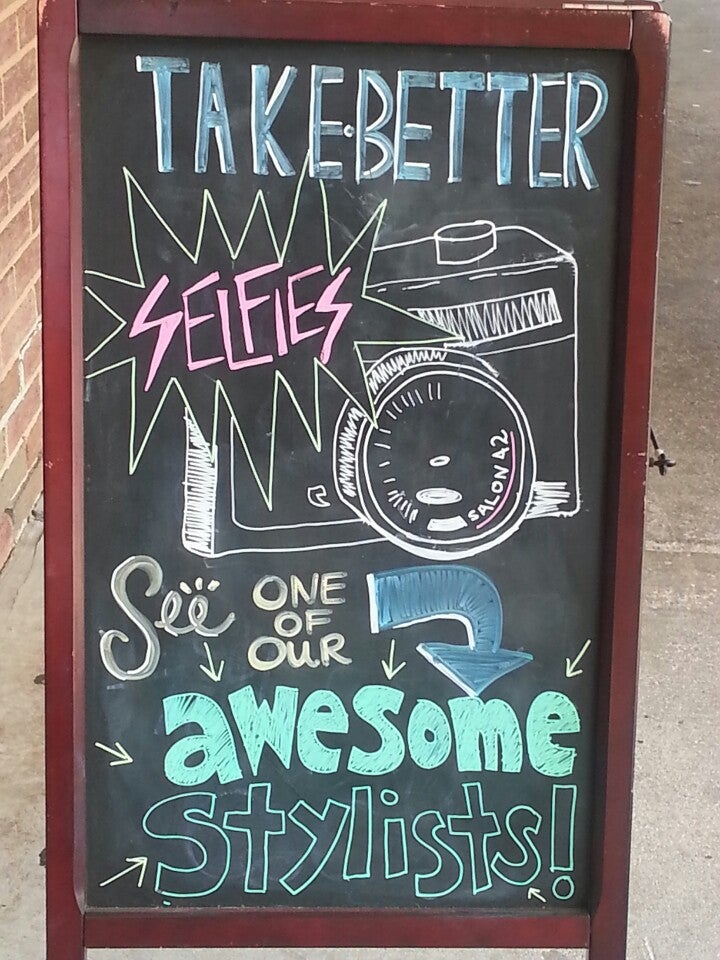 TAKE·BETTER
SELFIES
SALON 42
See ONE
OF
OUR
awesome
Stylists!